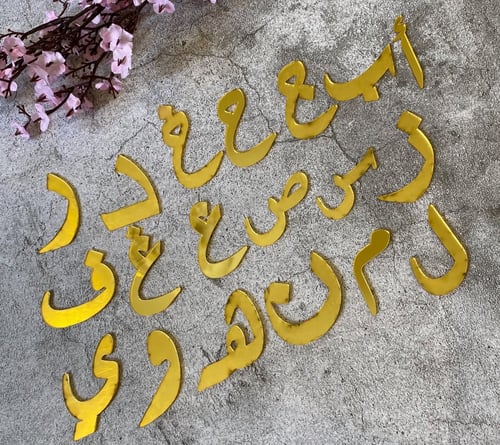 أ ب ج ح خ د ر
ز س ص ع غ ف
ل م ن هـ و ي